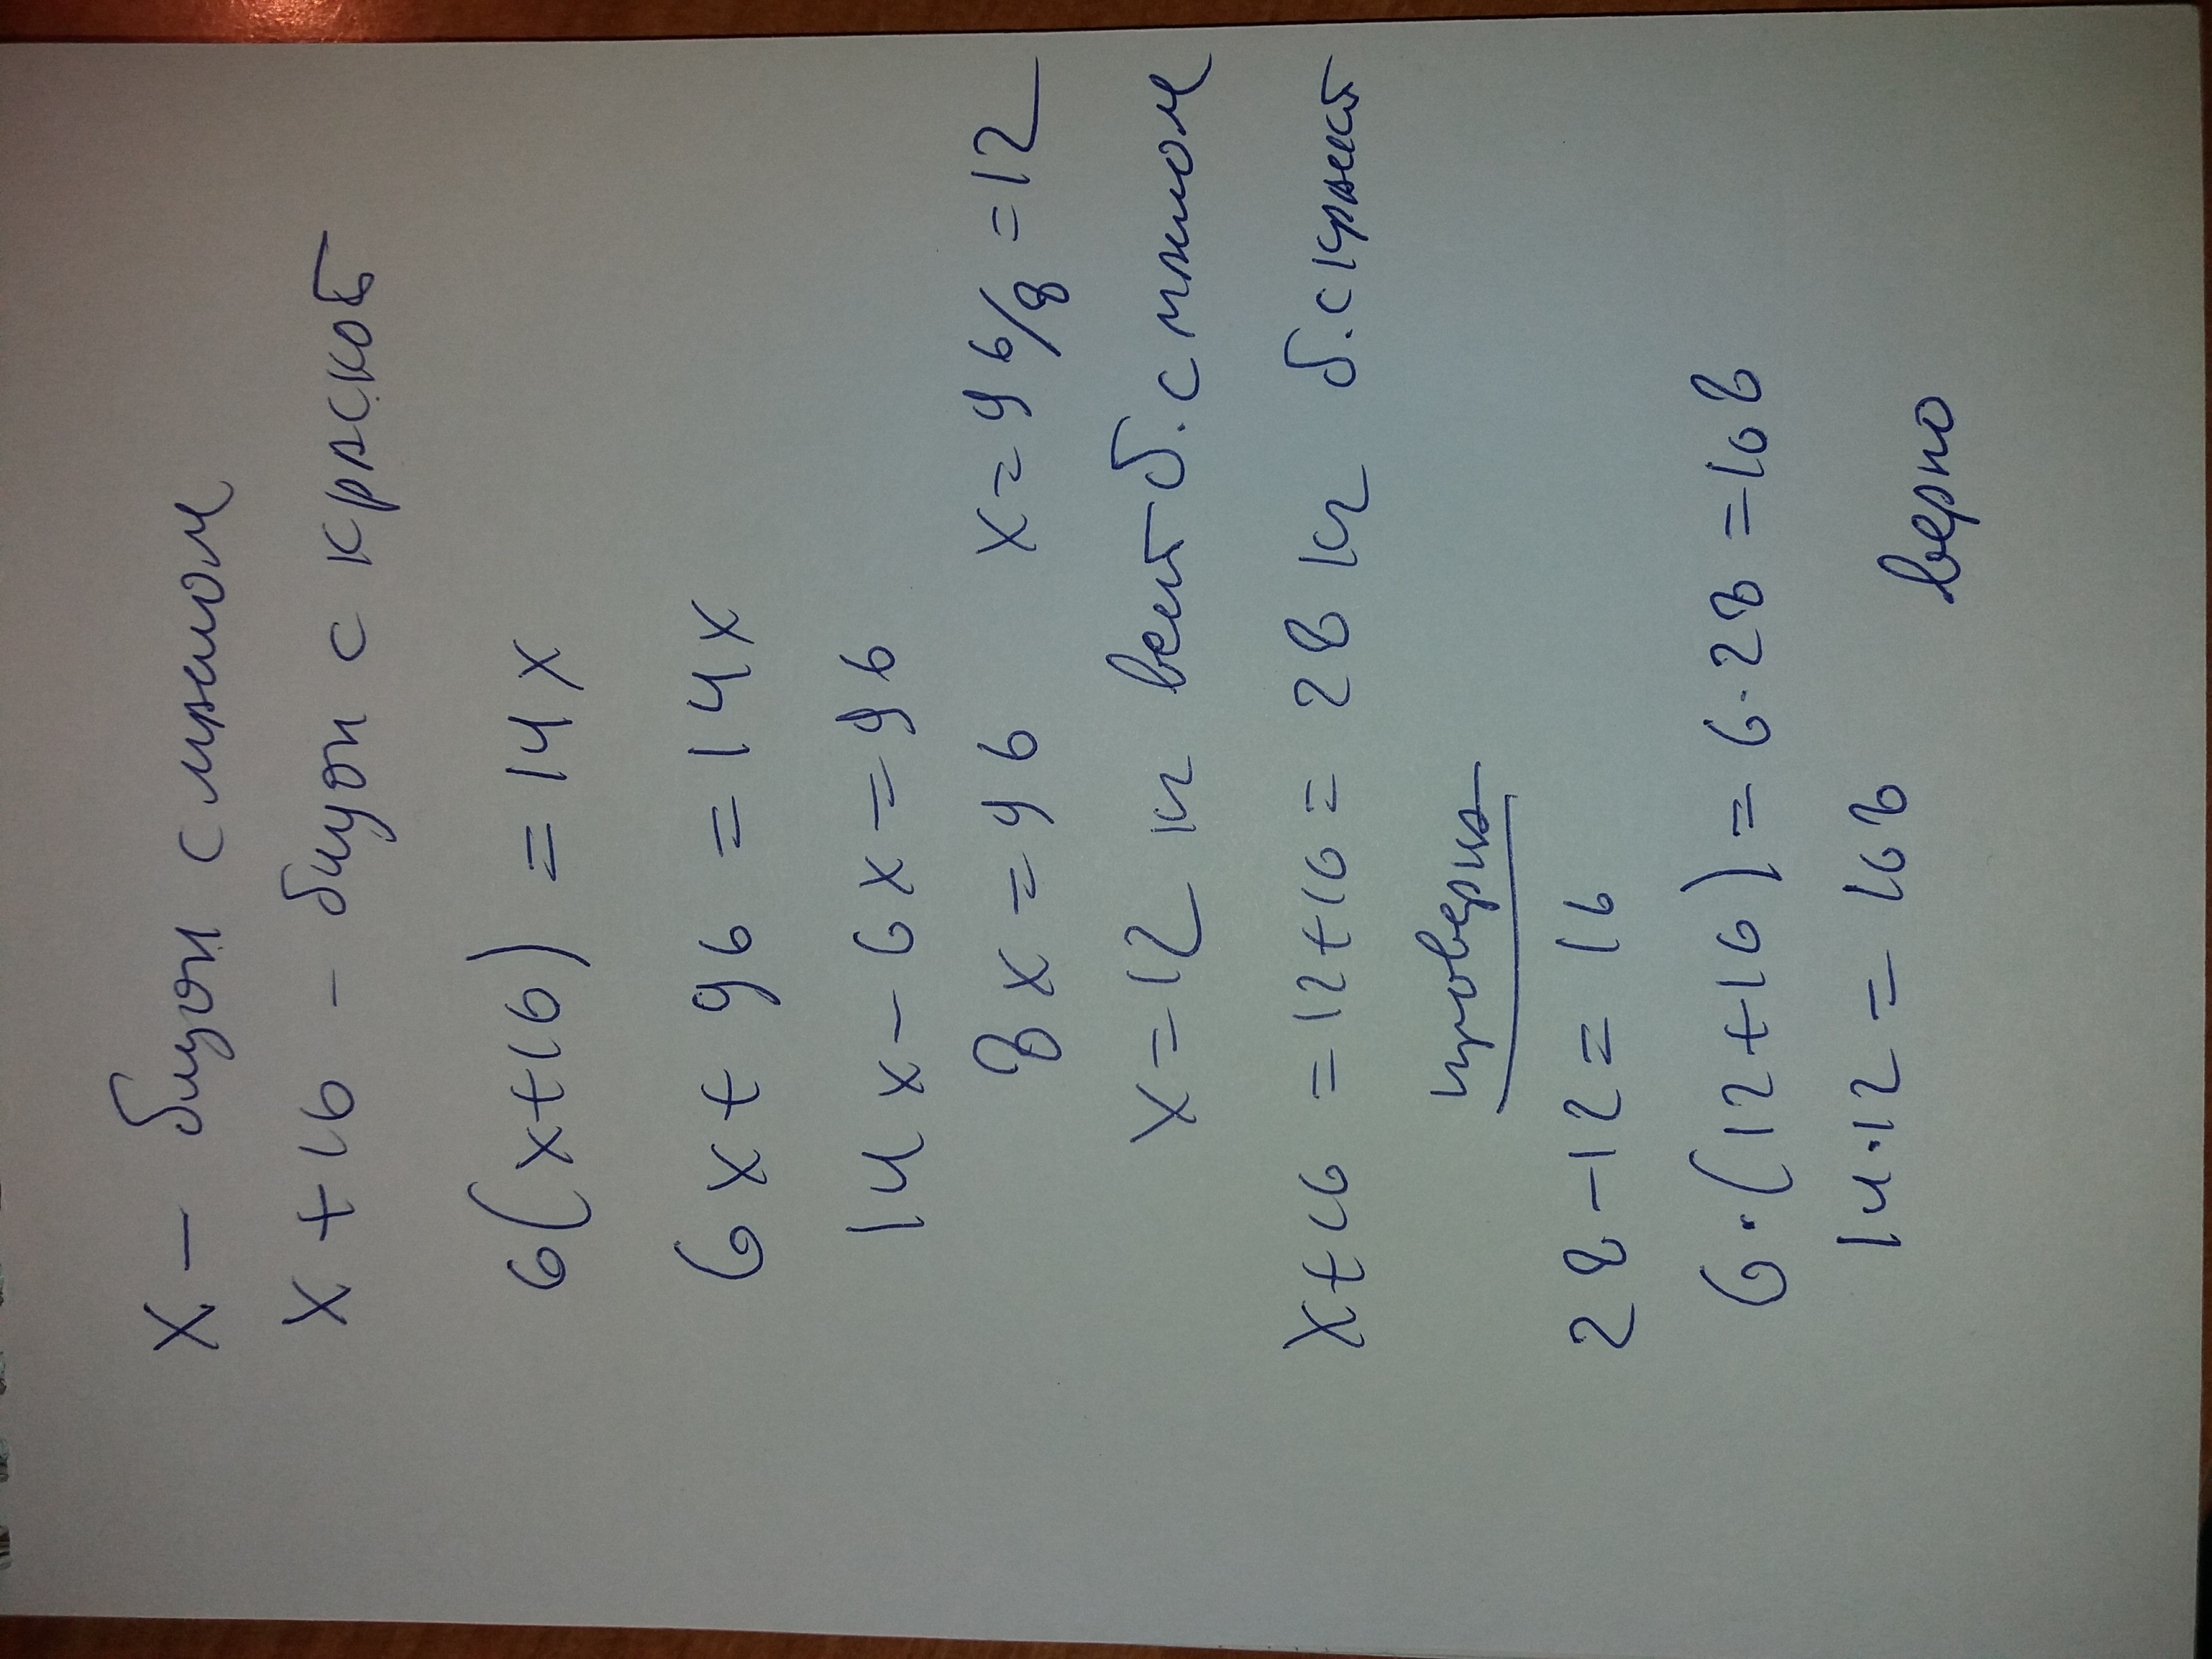 x - бидон с мёдом
x + 16 - бидон с краской
6(x+16) = 14x
6x + 96 = 14x
14x - 6x = 96
8x = 96 x = 96/8 = 12
x = 12 кг весит б. с
x + 16 = 12 + 16 = 28 кг б. с
проверка
28 - 12 = 16
6·(12+16) = 6·28 = 168
14·12 = 168
верно